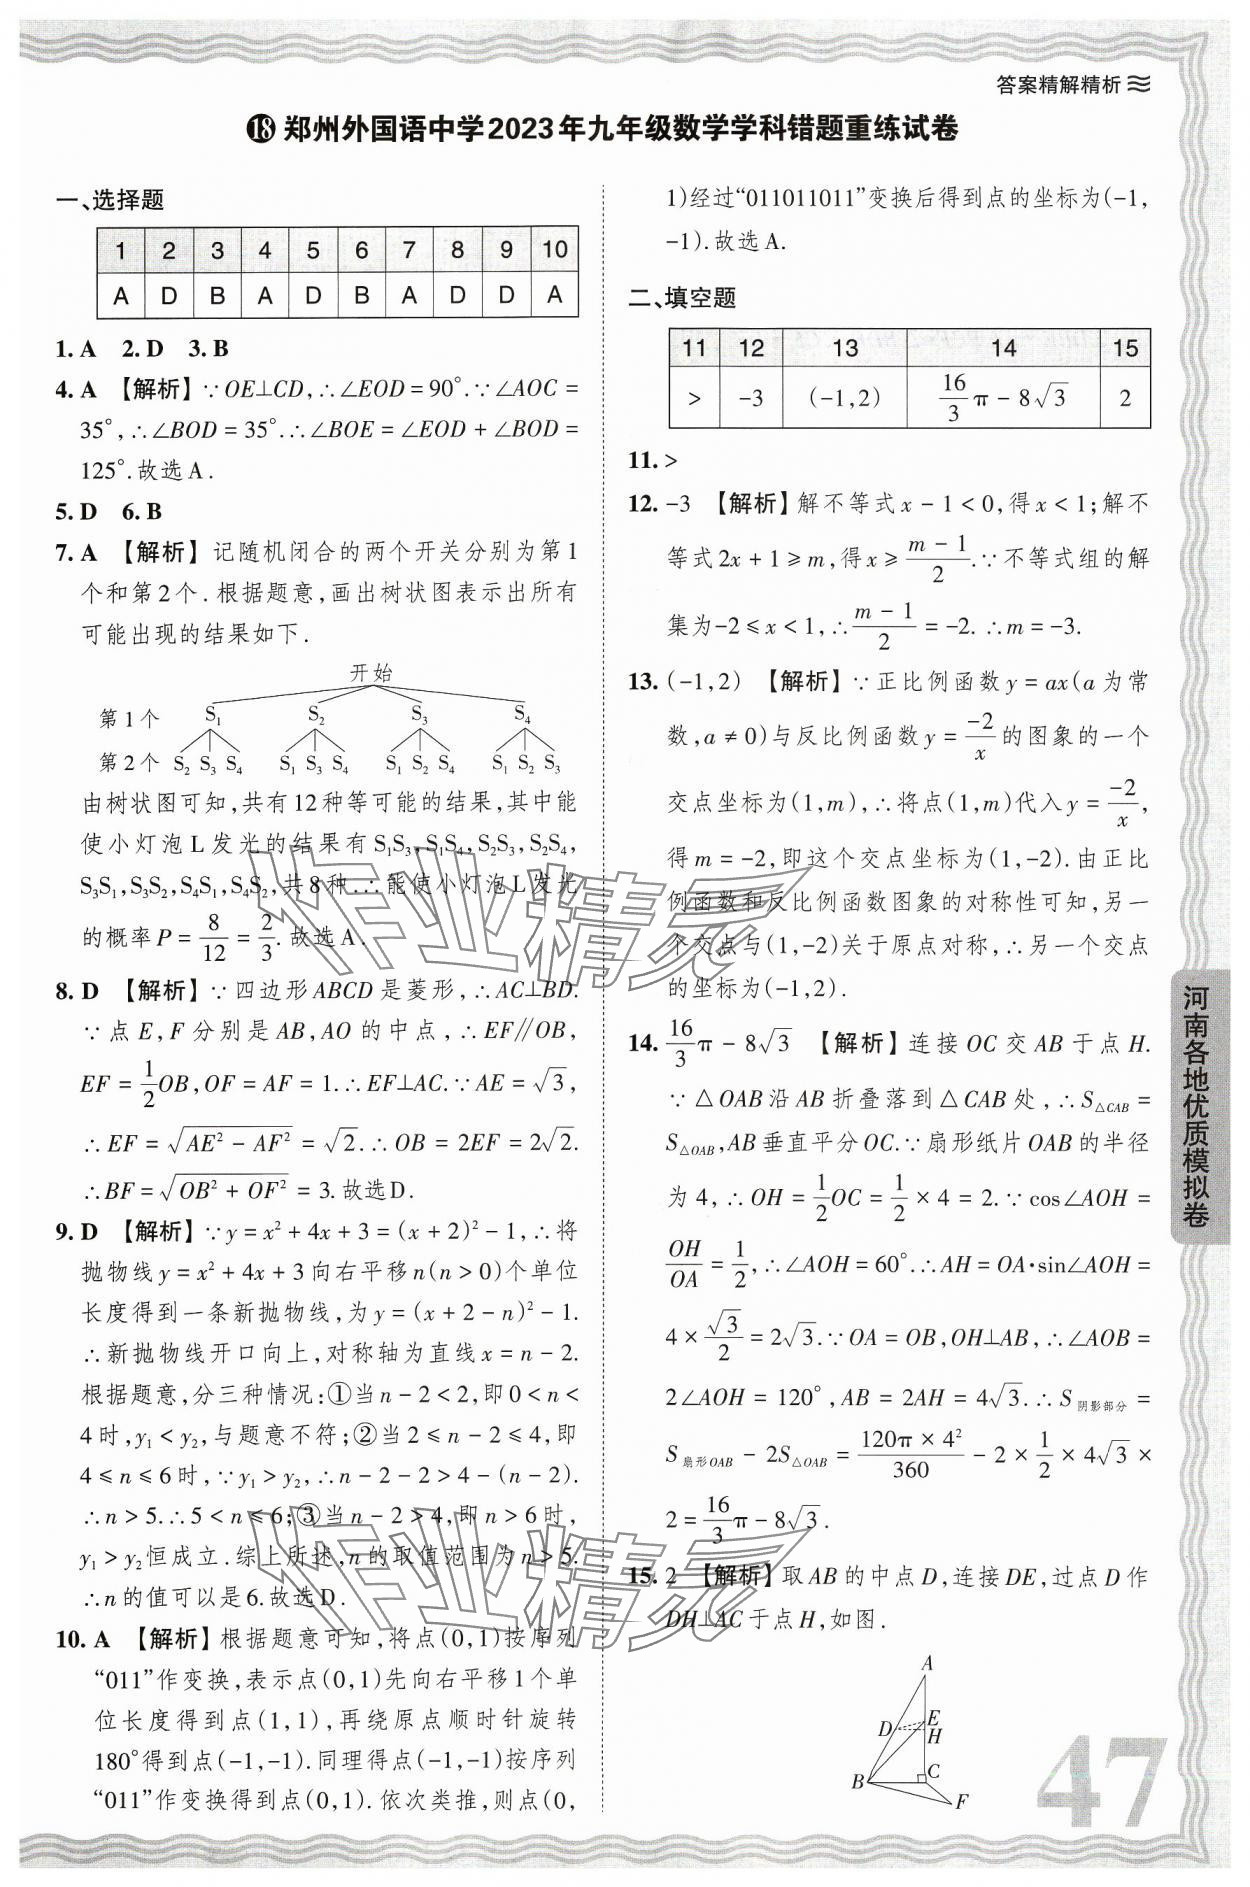 答案精解精析
⑱ 郑州外国语中学2023年九年级数学学科错题重练试卷
一、选择题
1 2 3 4 5 6 7 8 9 10
A D B A D B A D D A
1. A 2. D 3. B
4. A 【解析】∵OE⊥CD,∴∠EOD=90°.∵∠AOC=
35°,∴∠BOD=35°.∴∠BOE=∠EOD+∠BOD=
125°.故选A.
5. D 6. B
7. A 【解析】记随机闭合的两个开关分别为第1
个和第2个.根据题意,画出树状图表示出所有
可能出现的结果如下.
开始
第1个 S₁ S₂ S₃ S₄
第2个 S₂ S₃ S₄ S₁ S₃ S₄ S₁ S₂ S₄ S₁ S₂ S₃
由树状图可知,共有12种等可能的结果,其中能
使小灯泡L发光的结果有S₁S₃,S₁S₄,S₂S₃,S₂S₄,
S₃S₁,S₃S₂,S₄S₁,S₄S₂,共8种.∴能使小灯泡L发光
的概率P=8/12=2/3.故选A.
8. D 【解析】∵四边形ABCD是菱形,∴AC⊥BD.
∵点E,F分别是AB,AO的中点,∴EF∥OB,
EF=1/2OB,OF=AF=1.∴EF⊥AC.∵AE=√3,
∴EF=√(AE²-AF²)=√2.∴OB=2EF=2√2.
∴BF=√(OB²+OF²)=3.故选D.
9. D 【解析】∵y=x²+4x+3=(x+2)²-1,∴将
抛物线y=x²+4x+3向右平移n(n>0)个单位
长度得到一条新抛物线,为y=(x+2-n)²-1.
∴新抛物线开口向上,对称轴为直线x=n-2.
根据题意,分三种情况:①当n-2<2,即0<n<
4时,y₁<y₂,与题意不符;②当2≤n-2≤4,即
4≤n≤6时,∵y₁>y₂,∴n-2-2>4-(n-2).
∴n>5.∴5<n≤6;③当n-2>4,即n>6时,
y₁>y₂恒成立.综上所述,n的取值范围为n>5.
∴n的值可以是6.故选D.
10. A 【解析】根据题意可知,将点(0,1)按序列
“011”作变换,表示点(0,1)先向右平移1个单
位长度得到点(1,1),再绕原点顺时针旋转
180°得到点(-1,-1).同理得点(-1,-1)按序列
“011”作变换得到点(0,1).依次类推,则点(0,
1)经过“011011011”变换后得到点的坐标为(-1,
-1).故选A.
二、填空题
11 12 13 14 15
> -3 (-1,2) 16/3π-8√3 2
11. >
12. -3 【解析】解不等式x-1<0,得x<1;解不
等式2x+1≥m,得x≥(m-1)/2.∵不等式组的解
集为-2≤x<1,∴(m-1)/2=-2.∴m=-3.
13. (-1,2) 【解析】∵正比例函数y=ax(a为常
数,a≠0)与反比例函数y=-2/x的图象的一个
交点坐标为(1,m),∴将点(1,m)代入y=-2/x,
得m=-2,即这个交点坐标为(1,-2).由正比
例函数和反比例函数图象的对称性可知,另一
个交点与(1,-2)关于原点对称,∴另一个交点
的坐标为(-1,2).
14. 16/3π-8√3 【解析】连接OC交AB于点H.
∵△OAB沿AB折叠落到△CAB处,∴S△CAB=
S△OAB,AB垂直平分OC.∵扇形纸片OAB的半径
为4,∴OH=1/2OC=1/2×4=2.∵cos∠AOH=
OH/OA=1/2,∴∠AOH=60°.∴AH=OA·sin∠AOH=
4×√3/2=2√3.∵OA=OB,OH⊥AB,∴∠AOB=
2∠AOH=120°,AB=2AH=4√3.∴S阴影部分=
S扇形OAB-2S△OAB=120π×4²/360-2×1/2×4√3×
2=16/3π-8√3.
15. 2 【解析】取AB的中点D,连接DE,过点D作
DH⊥AC于点H,如图.
A
D
E
H
B
C
F
河南各地优质模拟卷
47
作业精灵
作业精灵